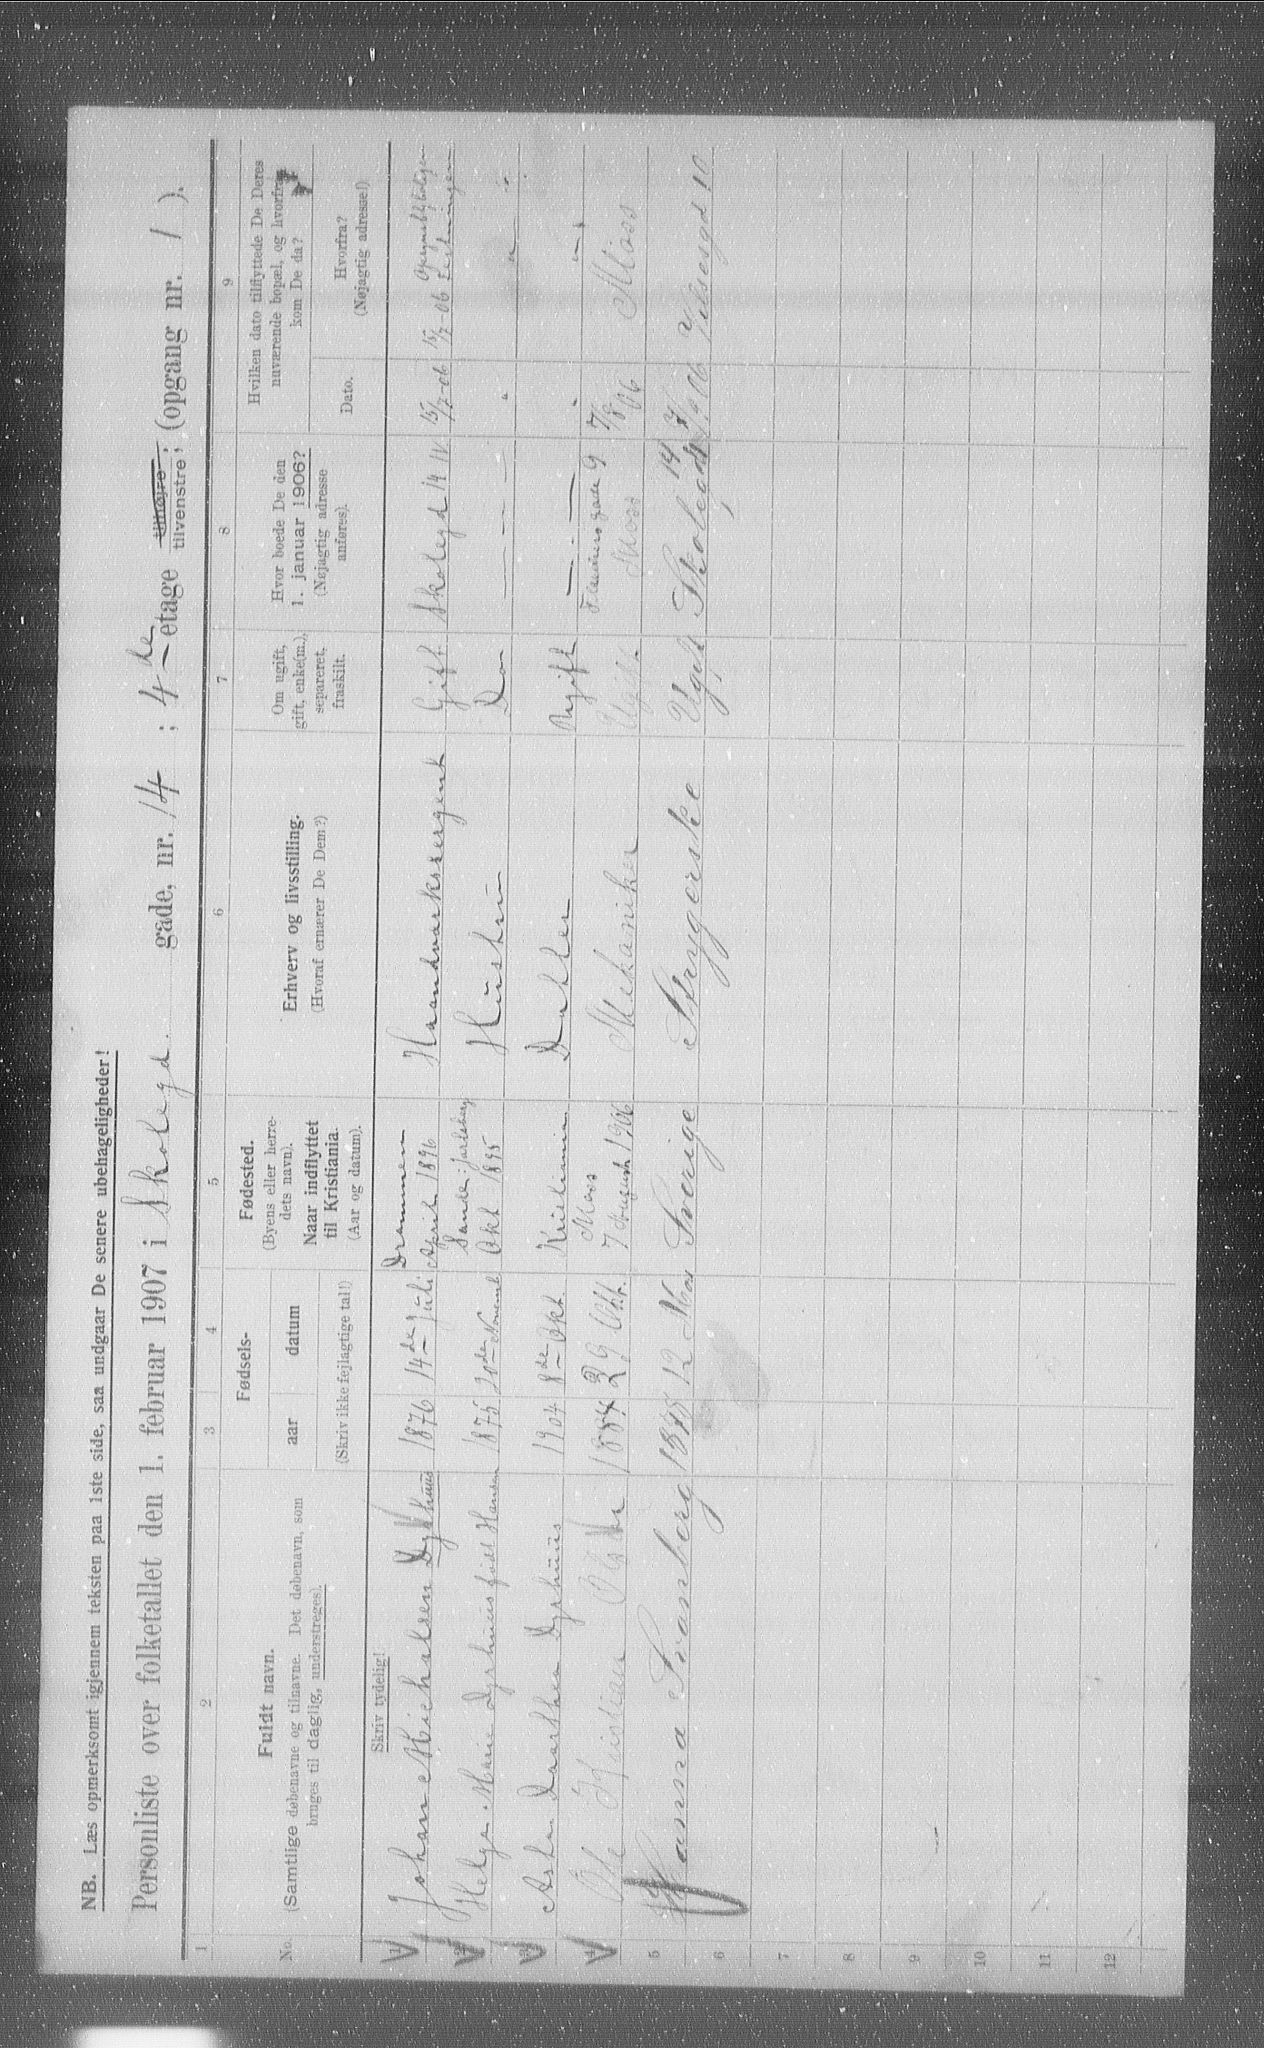 NB. Læs opmerksomt igjennem teksten paa 1ste side, saa undgaar De senere ubehageligheder!
Personliste over folketallet den 1. februar 1907 i Skolegd. gade, nr. 14 ; 4de etage tilhøjre tilvenstre; (opgang nr. 1 ).
1 2 3 4 5 6 7 8 9
No.
Fuldt navn.
(Samtlige døbenavne og tilnavne. Det døbenavn, som
bruges til daglig, understreges).
Fødsels-
aar datum
(Skriv ikke fejlagtige tal!)
Fødested.
(Byens eller herre-
dets navn).
Naar indflyttet
til Kristiania.
(Aar og datum).
Erhverv og livsstilling.
(Hvoraf ernærer De Dem?)
Om ugift,
gift, enke(m.),
separeret,
fraskilt.
Hvor boede De den
1. januar 1906?
(Nøjagtig adresse
anføres).
Hvilken dato tilflyttede De Deres
nuværende bopæl, og hvorfra
kom De da?
Dato.
Hvorfra?
(Nøjagtig adresse!)
Skriv tydelig!
1 Johan Michalsen Dyrhuus 1876 14de juli Drammen April 1896 Haandværkssergent Gift Skolegd 14 IV 15/7-06 15/7-06
2 Helga Marie Dyrhuus født Hansen 1875 20de November Sande i Jarlsberg Okt 1895 Hustru Do — " — " — " —
3 Asta Daarthea Dyrhuus 1904 8de Okt. Kristiania Datter Ugift — " — " — " —
4 Ole Kristian 1884 29 Okt. Moss 7 August 1906 Mekaniker Ugift 9 Moss 7/8 06 Moss
5 Hanna Svanberg 1878 12 Nov Sverige Strygerske Ugift Skolegd 14 06 10
6
7
8
9
10
11
12